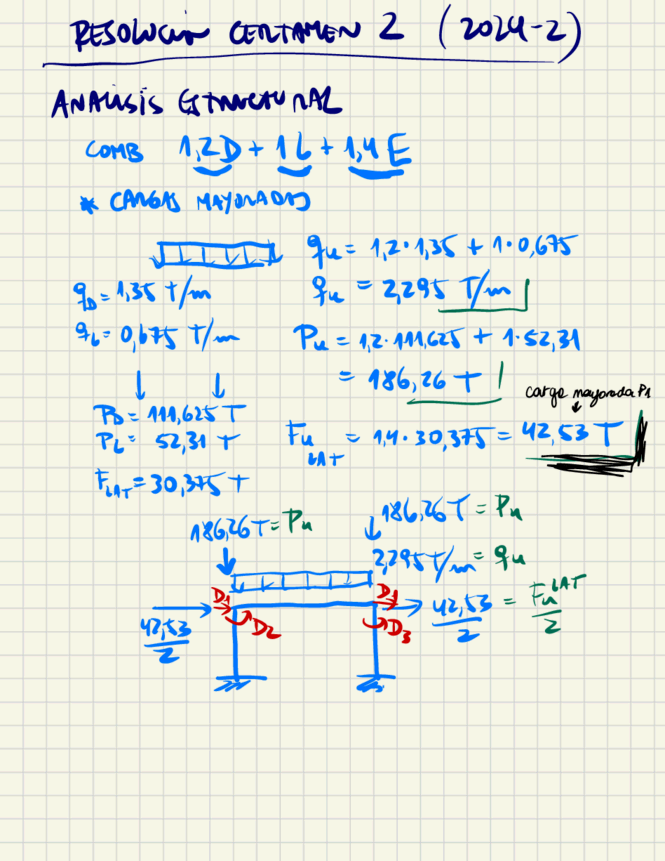 RESOLUCIÓN CERTAMEN 2 (2024-2)
ANALISIS ESTRUCTURAL
COMB 1,2D + 1L + 1,4E
* CARGAS MAYORADAS
qu = 1,2·1,35 + 1·0,675
qD = 1,35 T/m
qu = 2,295 T/m
qL = 0,675 T/m
Pu = 1,2·111,625 + 1·52,31
= 186,26 T
carga mayorada P1
PD = 111,625 T
PL = 52,31 T
Fu LAT = 1,4·30,375 = 42,53 T
FLAT = 30,375 T
186,26T = Pu
186,26T = Pu
2,295 T/m = qu
D1
D1
42,53/2
D2
D3
42,53/2 = Fu LAT/2